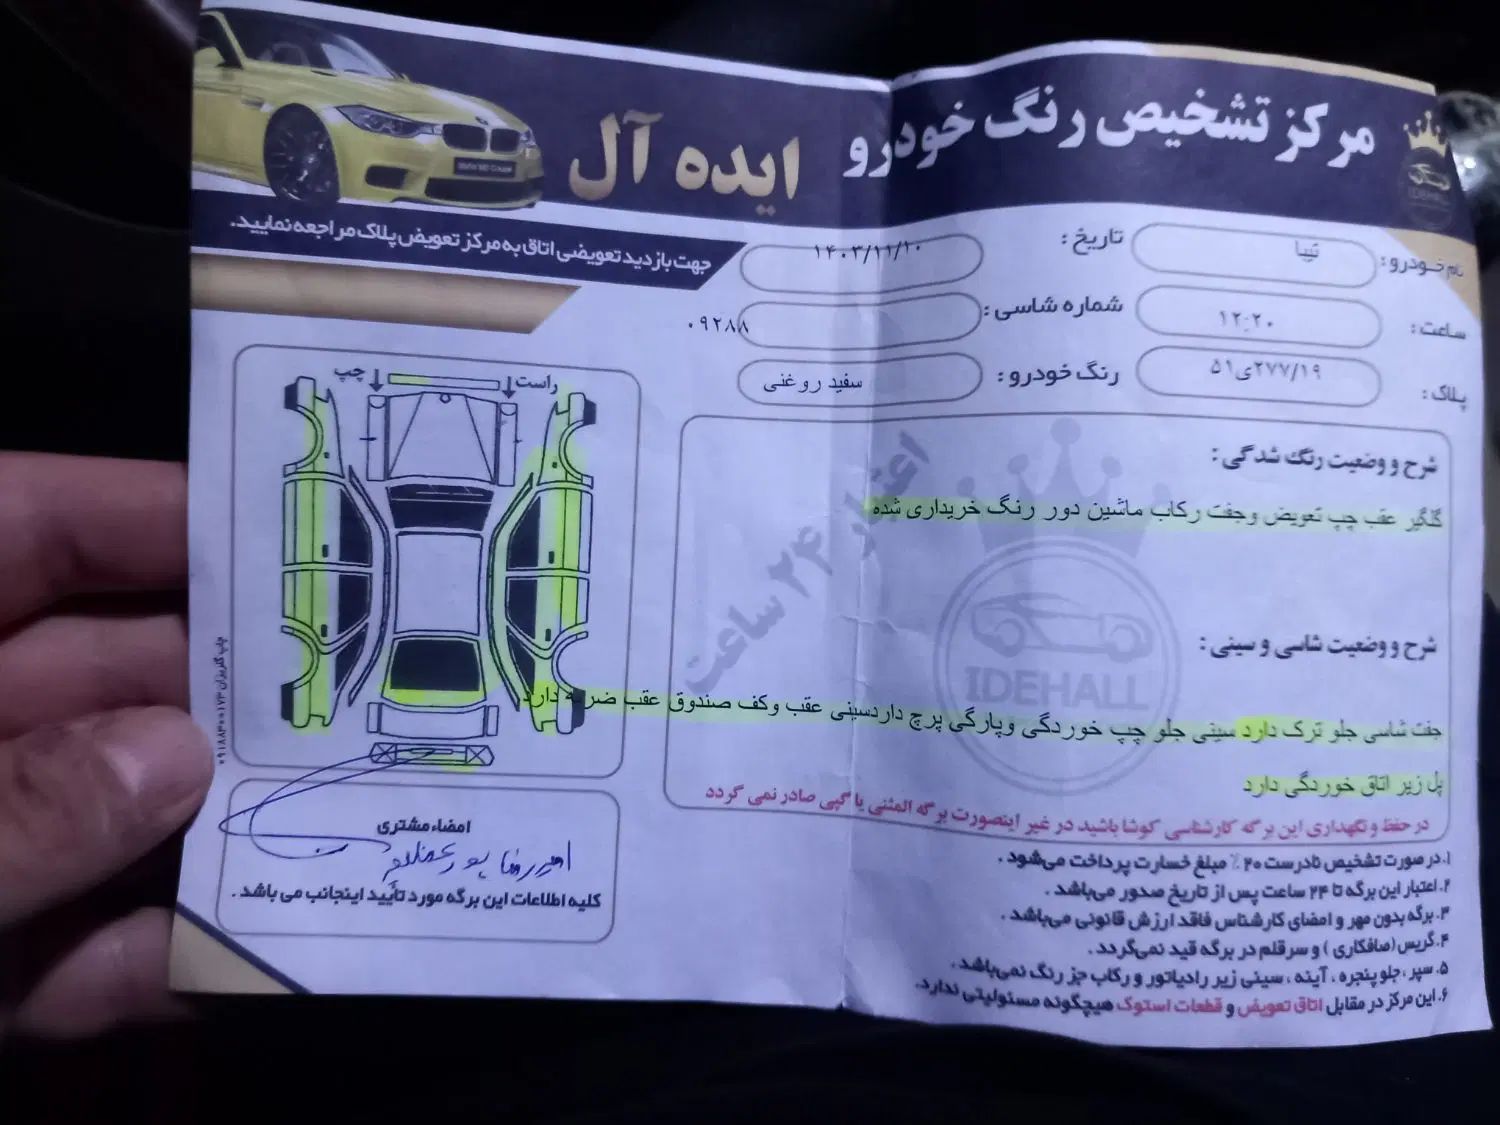 مرکز تشخیص رنگ خودرو ایده آل
IDEHALL
جهت بازدید تعویضی اتاق به مرکز تعویض پلاک مراجعه نمایید.
نام خودرو: تیبا
تاریخ: ۱۴۰۳/۱۱/۱۰
ساعت: ۱۲:۲۰
شماره شاسی: ۰۹۲۸۸
پلاک: ۲۷۷/۱۹ی۵۱
رنگ خودرو: سفید روغنی
چپ
راست
شرح و وضعیت رنگ شدگی:
گلگیر عقب چپ تعویض وجفت رکاب ماشین دور رنگ خریداری شده
اعتبار ۲۴ ساعت
IDEHALL
شرح و وضعیت شاسی و سینی:
جفت شاسی جلو ترک دارد سینی جلو چپ خوردگی وپارگی پرچ داردسینی عقب وکف صندوق عقب ضربه دارد
پل زیر اتاق خوردگی دارد
در حفظ و نگهداری این برگه کارشناسی کوشا باشید در غیر اینصورت برگه المثنی یا کپی صادر نمی گردد
امضاء مشتری
کلیه اطلاعات این برگه مورد تأیید اینجانب می باشد.
۱.در صورت تشخیص نادرست ۲۰٪ مبلغ خسارت پرداخت می‌شود.
۲.اعتبار این برگه تا ۲۴ ساعت پس از تاریخ صدور می‌باشد.
۳.برگه بدون مهر و امضای کارشناس فاقد ارزش قانونی می‌باشد.
۴.گریس(صافکاری) و سرقلم در برگه قید نمی‌گردد.
۵.سپر، جلو پنجره، آینه، سینی زیر رادیاتور و رکاب جز رنگ نمی‌باشد.
۶.این مرکز در مقابل اتاق تعویض و قطعات استوک هیچگونه مسئولیتی ندارد.